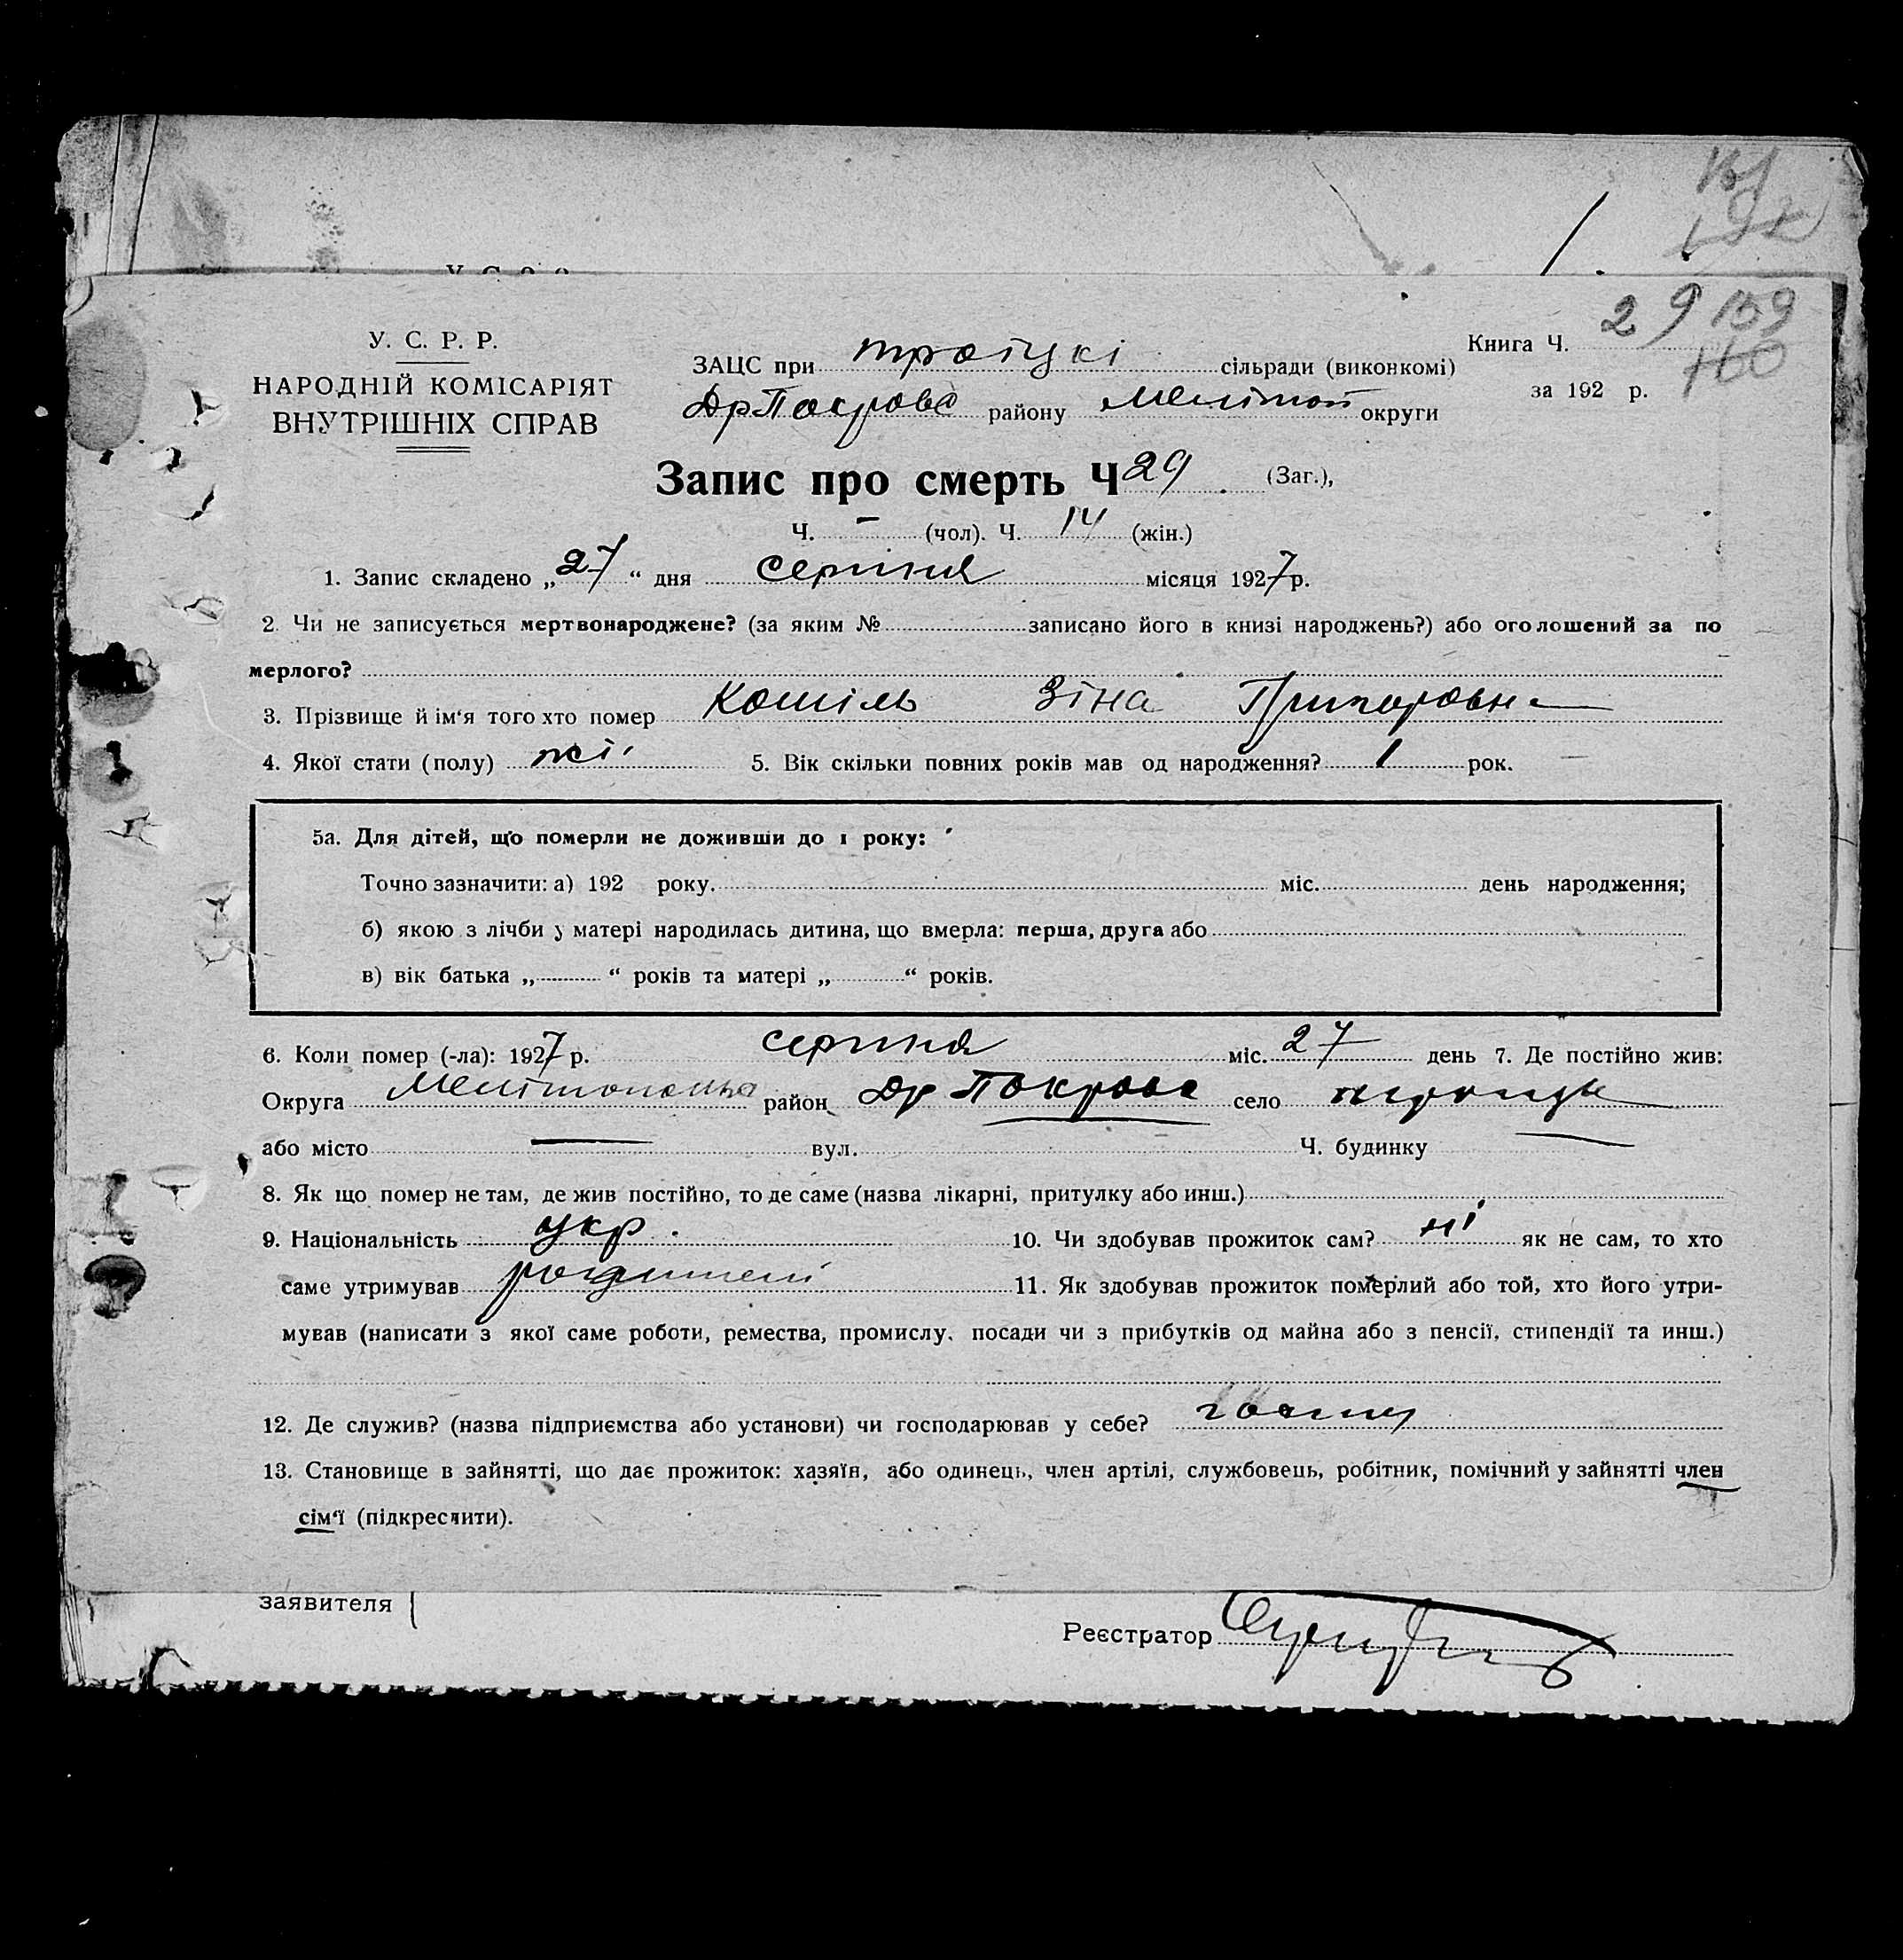 У. С. Р. Р.
НАРОДНІЙ КОМІСАРІЯТ
ВНУТРІШНІХ СПРАВ
Книга Ч. 29 159
160
за 192 р.
ЗАЦС при троіцкі сільради (виконкомі)
Др Покров району Меліпол округи
Запис про смерть Ч 29 (Заг.),
Ч. – (чол). Ч. 14 (жін.)
1. Запис складено „27“ дня серпня місяця 1927 р.
2. Чи не записується мертвонароджене? (за яким № записано його в книзі народжень?) або оголошений за по
мерлого?
3. Прізвище й ім'я того хто помер Кошіль Зіна
4. Якої стати (полу) жі 5. Вік скільки повних років мав од народження? 1 рок.
5а. Для дітей, що померли не доживши до 1 року:
Точно зазначити: а) 192 року. міс. день народження;
б) якою з лічби у матері народилась дитина, що вмерла: перша, друга або
в) вік батька „ “ років та матері „ “ років.
6. Коли помер (-ла): 1927 р. серпня міс. 27 день 7. Де постійно жив:
Округа Мелітопольс район Др Покровс село
або місто — вул. Ч. будинку —
8. Як що помер не там, де жив постійно, то де саме (назва лікарні, притулку або инш.)
9. Національність укр. 10. Чи здобував прожиток сам? ні як не сам, то хто
саме утримував родителі 11. Як здобував прожиток померлий або той, хто його утри-
мував (написати з якої саме роботи, ремества, промислу, посади чи з прибутків од майна або з пенсії, стипендії та инш.)
12. Де служив? (назва підприємства або установи) чи господарював у себе?
13. Становище в зайнятті, що дає прожиток: хазяїн, або одинець, член артілі, службовець, робітник, помічний у зайнятті член
сім'ї (підкреслити).
заявителя
Реєстратор